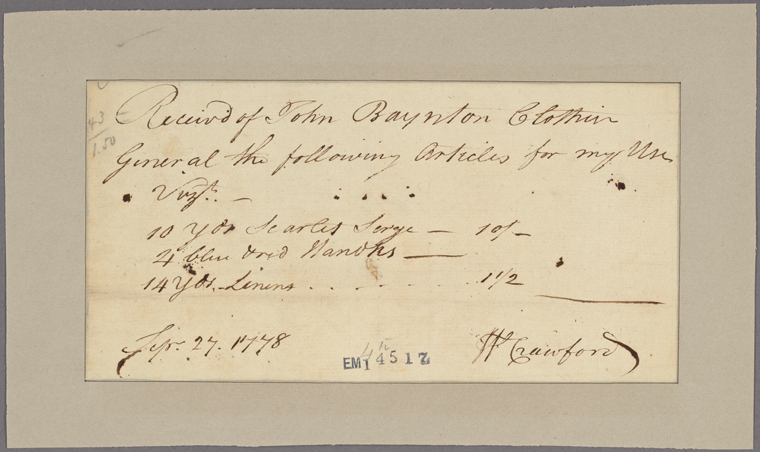 43
1.50
Receiv'd of John Baynton Clothier
General the following Articles for my Use
Vizt. —
10 Yds Scarlet Serge — 10/–
4 blue & red Handkfs —
14 Yds. Linens . . . . . . . . . 11/2
Sepr. 27. 1778
Wm Crawford
EM 14517